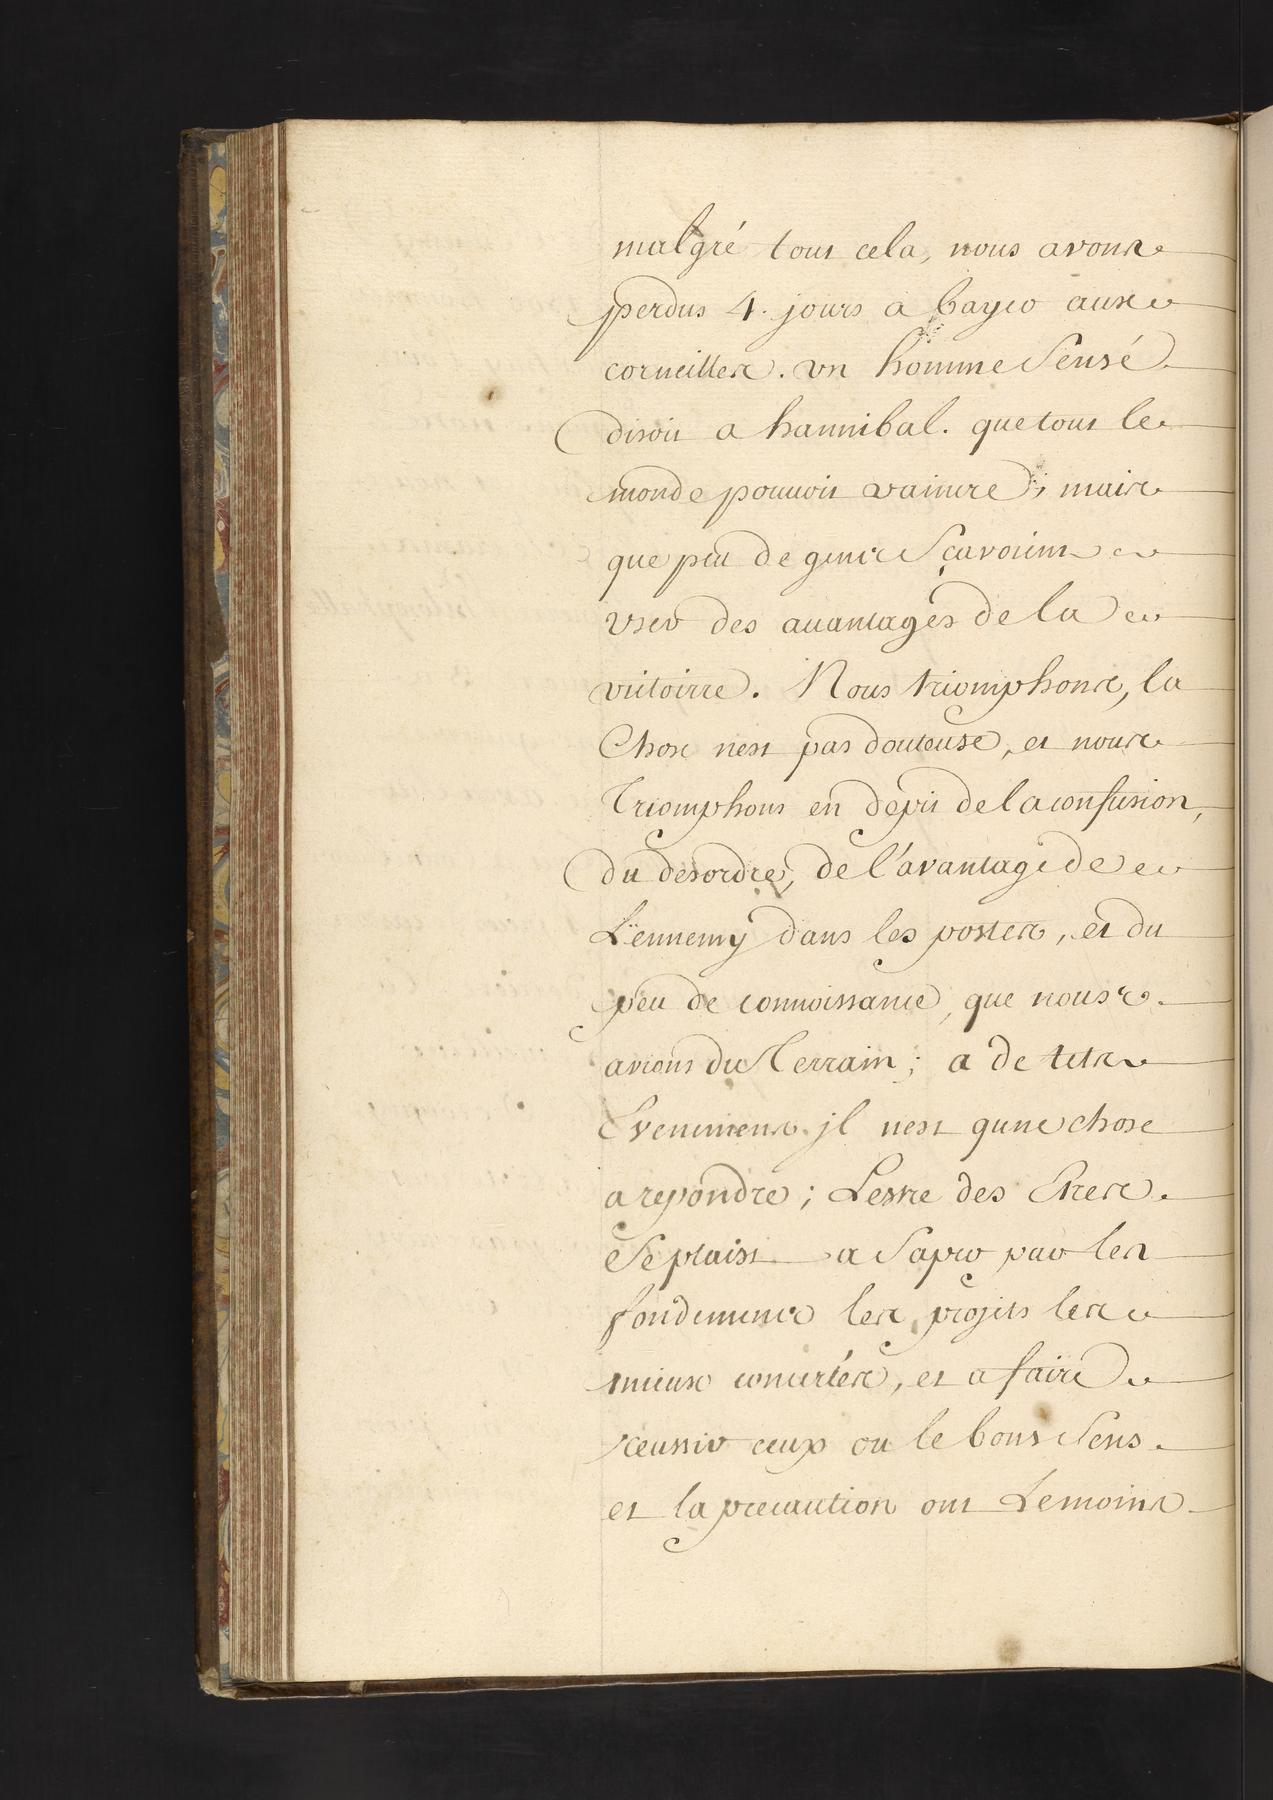 malgré tout cela, nous avons
perdus 4. jours a bayer aux
corneilles. vn homme Sensé
disoit a hannibal. que tout le
monde pouuoit vaincre ; mais
que peu de gents Scavoient
vser des auantages de la
victoirre. Nous triomphons, la
Chose nest pas douteuse, et nous
Triomphons en depit de la confusion,
du desordre, de l'avantage de
L'ennemy dans les postes, et du
peu de connoissance, que nous
avions du Terrain ; a de tels
Evenements jl nest qune chose
a repondre ; Lestre des Etres
Se plaist a Saper par les
fondements les projets les
mieux concertés, et a faire
reussir ceux ou le bons Sens
et la precaution ont Le moins